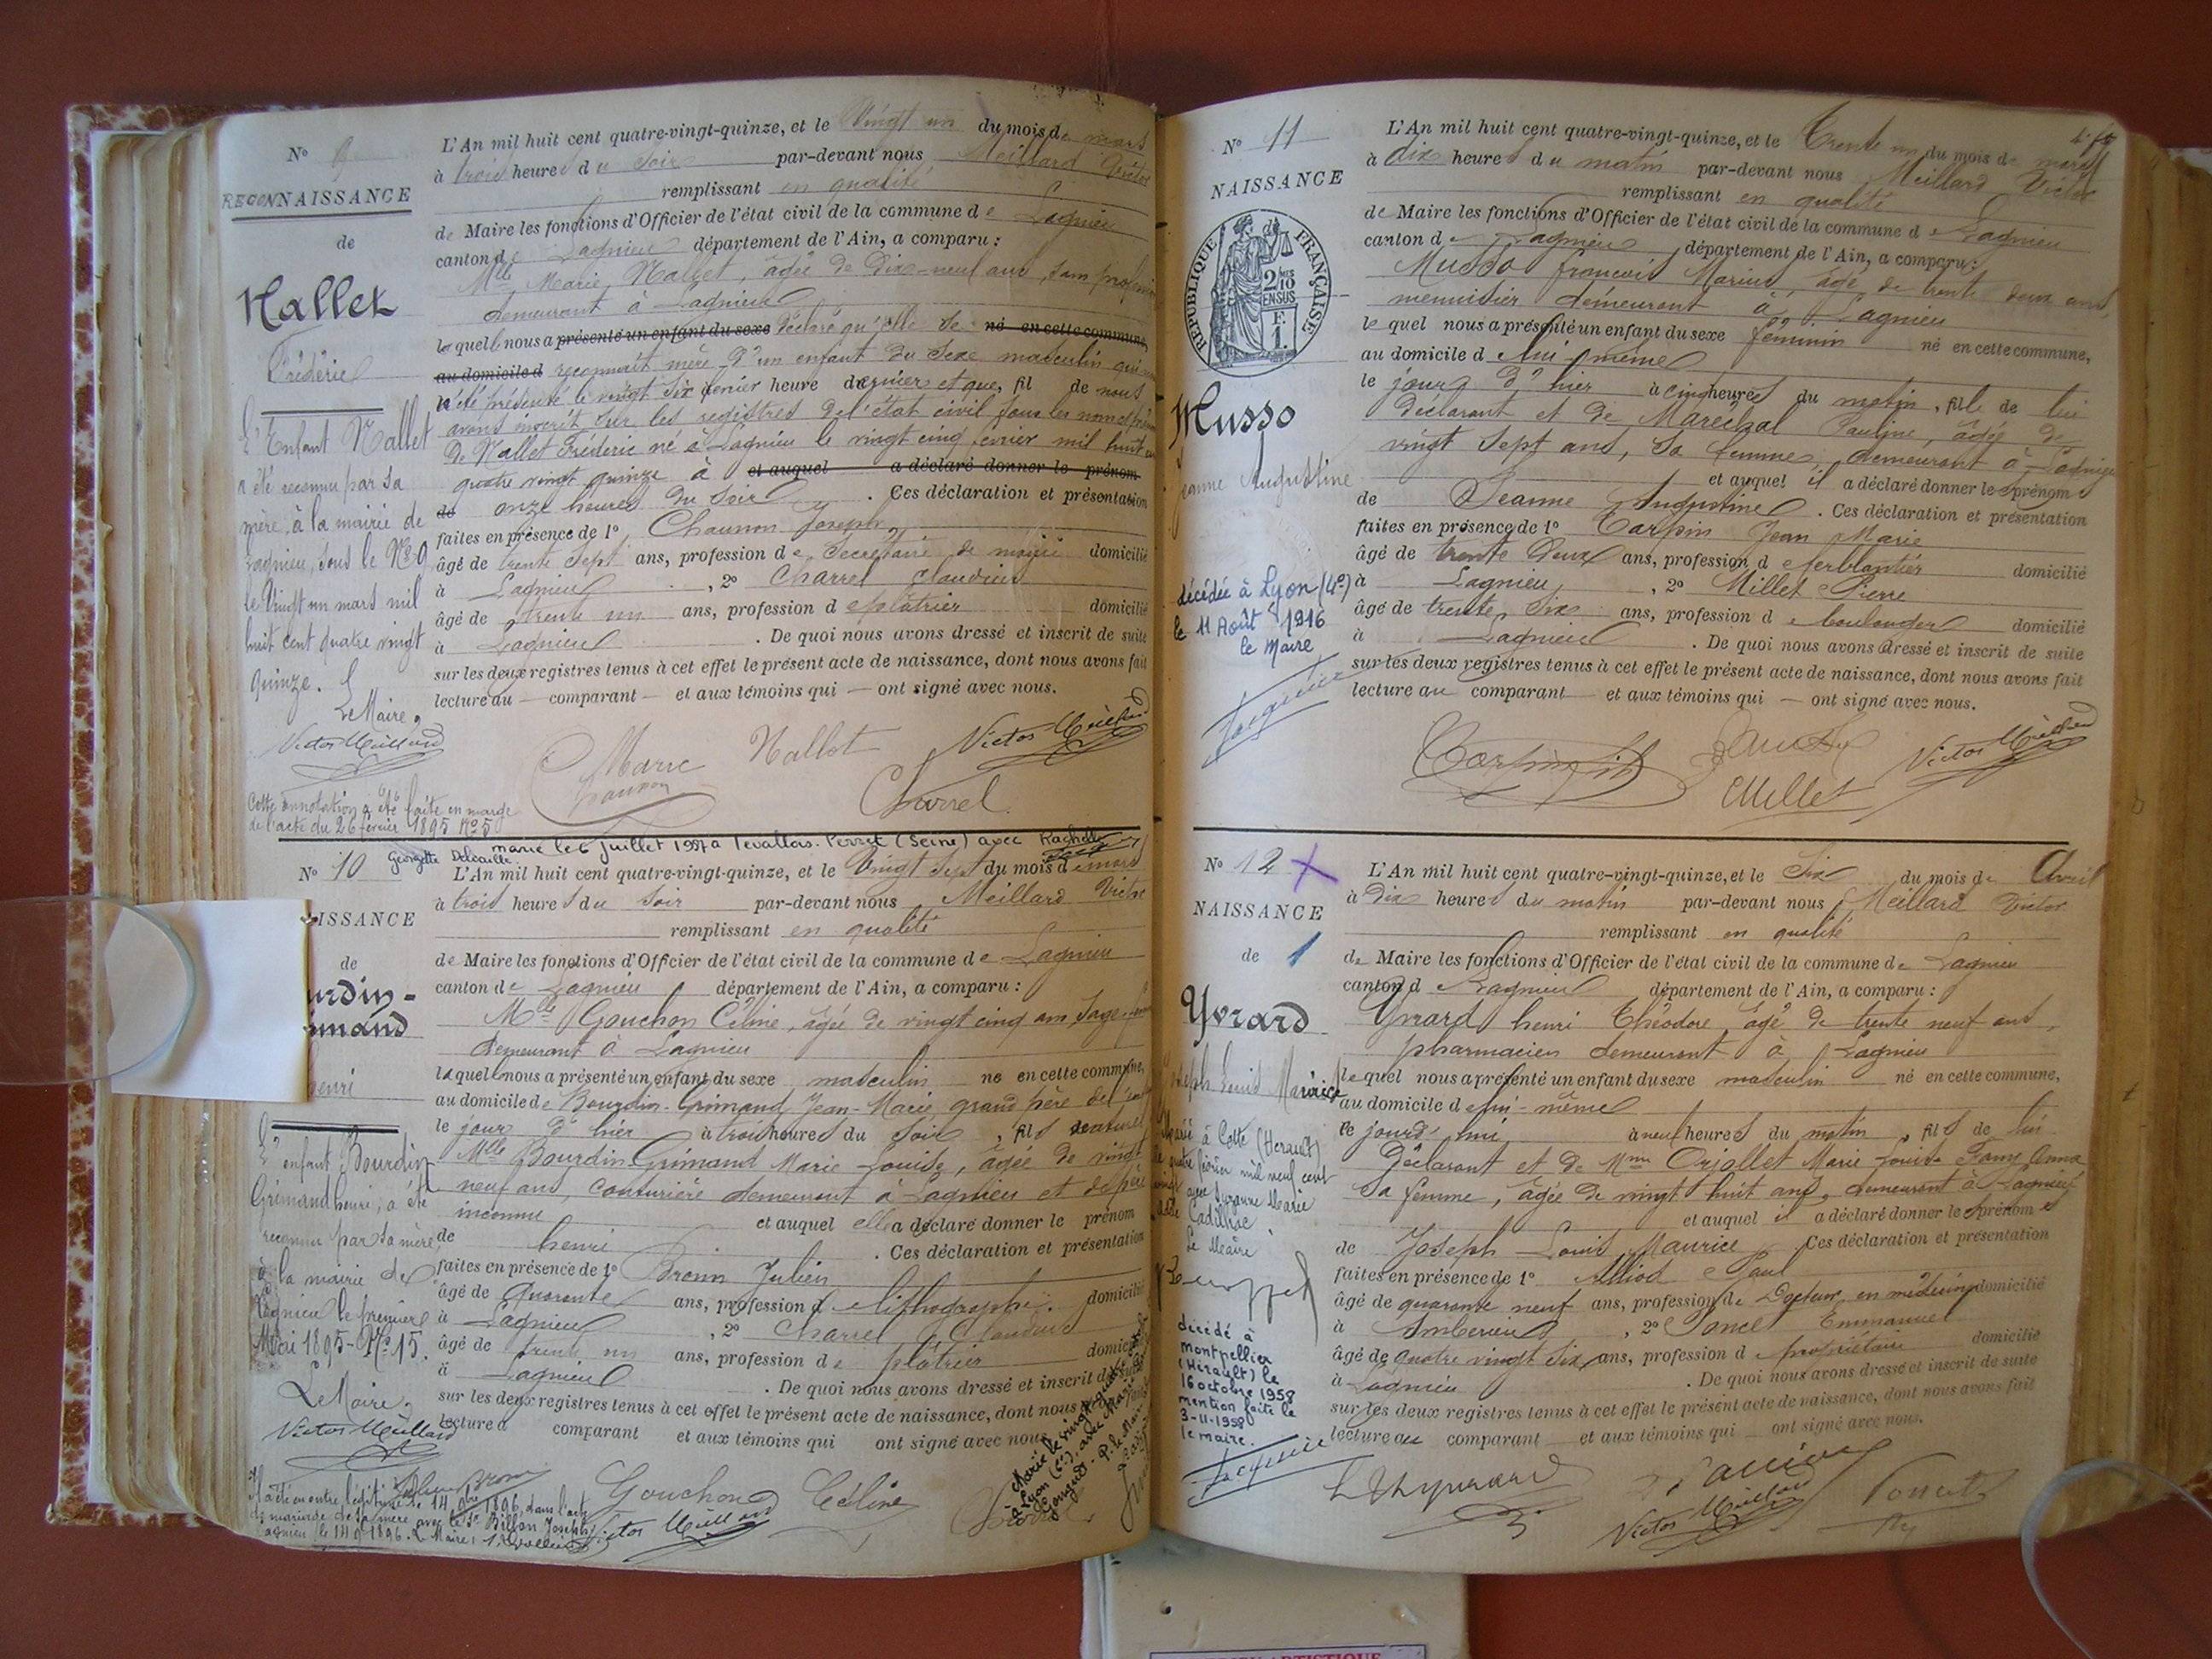 N° 9
RECONNAISSANCE
de
Nallet
Frédéric
L'Enfant Nallet
a été reconnu par sa
mère, à la mairie de
Lagnieu, sous le N° 9
le Vingt un mars mil
huit cent quatre vingt
quinze.
Le Maire,
Victor Meillard
Cette annotation a été faite en marge
de l'acte du 26 février 1895 N° 5
L'An mil huit cent quatre-vingt-quinze, et le Vingt un du mois de mars
à trois heures du soir par-devant nous Meillard Victor
remplissant en qualité
de Maire les fonctions d'Officier de l'état civil de la commune de Lagnieu
canton de Lagnieu département de l'Ain, a comparu :
Mlle Marie Nallet, âgée de Dix-neuf ans, sans profession
demeurant à Lagnieu
laquelle nous a présenté un enfant du sexe déclaré qu'elle se né en cette commune,
au domicile d reconnait mère d'un enfant du sexe masculin qui nous
a été présenté le vingt six fevrier heure dernier et que, fil de nous
avons inscrit sur les registres de l'état civil sous les noms et prénoms
de Nallet Frédéric né à Lagnieu le vingt cinq fevrier mil huit cent
quatre vingt quinze à et auquel a déclaré donner le prénom
de onze heures du soir . Ces déclaration et présentation
faites en présence de 1° Chaunon Joseph
âgé de trente sept ans, profession de Secrétaire de mairie domicilié
à Lagnieu , 2° Charrel Claudius
âgé de trente un ans, profession de plâtrier domicilié
à Lagnieu . De quoi nous avons dressé et inscrit de suite
sur les deux registres tenus à cet effet le présent acte de naissance, dont nous avons fait
lecture au — comparant — et aux témoins qui — ont signé avec nous.
Marie Nallet Victor Meillard
Charrel
marié le 6 juillet 1927 à Levallois-Perret (Seine) avec Rachelle
Georgette Delvaille
N° 10
ISSANCE
de
urdin-
imand
henri
L'enfant Bourdin
Grimand henri, a été
reconnu par sa mère,
à la mairie de
Lagnieu le premier
Mai 1895 - N° 15.
Le Maire,
Victor Meillard
L'An mil huit cent quatre-vingt-quinze, et le Vingt sept du mois de mars
à trois heures du soir par-devant nous Meillard Victor
remplissant en qualité
de Maire les fonctions d'Officier de l'état civil de la commune de Lagnieu
canton de Lagnieu département de l'Ain, a comparu :
Mlle Gouchon Céline, âgée de vingt cinq ans, sage-femme
demeurant à Lagnieu
laquelle nous a présenté un enfant du sexe masculin né en cette commune,
au domicile de Bourdin-Grimand Jean-Marie, grand père de l'enfant
le jour d'hier à trois heures du soir , fils naturel
Mlle Bourdin-Grimand Marie Louise, âgée de vingt
neuf ans, couturière demeurant à Lagnieu et de père
inconnu et auquel elle a déclaré donner le prénom
de henri . Ces déclaration et présentation
faites en présence de 1° Bronn Julien
âgé de quarante ans, profession de lithographe. domicilié
à Lagnieu , 2° Charrel Claudius
âgé de trente un ans, profession de plâtrier domicilié
à Lagnieu . De quoi nous avons dressé et inscrit de suite
sur les deux registres tenus à cet effet le présent acte de naissance, dont nous avons fait
lecture a comparant et aux témoins qui ont signé avec nous.
Julien Bronn Gouchon Céline
Victor Meillard Charrel
Il a été en outre légitimé le 14 9bre 1896, dans l'acte
de mariage de sa mère avec le Sr Billon Joseph
Lagnieu le 14 9 1896. Le Maire,
Marié le vingt quatre
à Lyon (6e), avec Marie
Gougud. P. le Maire
N° 11
NAISSANCE
de
RÉPUBLIQUE FRANÇAISE
2/10 EN SUS
E. 1.
Musso
Jeanne Augustine
décédée à Lyon (4e)
le 11 Août 1916
le Maire
Jacquier
L'An mil huit cent quatre-vingt-quinze, et le Trente un du mois de mars
à dix heures du matin par-devant nous Meillard Victor
remplissant en qualité
de Maire les fonctions d'Officier de l'état civil de la commune de Lagnieu
canton de Lagnieu département de l'Ain, a comparu :
Musso françois Marius, âgé de trente deux ans,
menuisier demeurant à Lagnieu
lequel nous a présenté un enfant du sexe féminin né en cette commune,
au domicile de lui-même
le jour d'hier à cinq heures du matin, fille de lui
déclarant et de Maréchal Pauline, âgée de
vingt sept ans, sa femme, demeurant à Lagnieu
et auquel il a déclaré donner les prénoms
de Jeanne Augustine . Ces déclaration et présentation
faites en présence de 1° Carpin Jean Marie
âgé de trente deux ans, profession de ferblantier domicilié
à Lagnieu , 2° Millet Pierre
âgé de trente six ans, profession de boulanger domicilié
à Lagnieu . De quoi nous avons dressé et inscrit de suite
sur les deux registres tenus à cet effet le présent acte de naissance, dont nous avons fait
lecture au comparant — et aux témoins qui — ont signé avec nous.
Carpin Musso Victor Meillard
Millet
N° 12
NAISSANCE
de 1
Yvrard
Joseph Louis Maurice
Marié à Cette (Hérault)
le quatre février mil neuf cent
vingt avec Suzanne Marie
Cadilhac
Le Maire
décédé à
Montpellier
(Hérault) le
16 octobre 1958
mention faite le
3-11-1958
le maire.
Jacquier
L'An mil huit cent quatre-vingt-quinze, et le Six du mois de Avril
à Dix heures du matin par-devant nous Meillard Victor
remplissant en qualité
de Maire les fonctions d'Officier de l'état civil de la commune de Lagnieu
canton de Lagnieu département de l'Ain, a comparu :
Yvrard henri Théodore, âgé de trente neuf ans,
pharmacien demeurant à Lagnieu
lequel nous a présenté un enfant du sexe masculin né en cette commune,
au domicile de lui-même
le jourd'hui à neuf heures du matin , fils de lui
Déclarant et de Mme Orjollet Marie Louise Fany Anna
sa femme, âgée de vingt huit ans, demeurant à Lagnieu
et auquel il a déclaré donner les prénoms
de Joseph Louis Maurice Ces déclaration et présentation
faites en présence de 1° Alliod Paul
âgé de quarante neuf ans, profession de Docteur en médecine domicilié
à Ambérieu , 2° Poncet Emmanuel
âgé de quatre vingt six ans, profession de propriétaire domicilié
à Lagnieu . De quoi nous avons dressé et inscrit de suite
sur les deux registres tenus à cet effet le présent acte de naissance, dont nous avons fait
lecture au comparant — et aux témoins qui — ont signé avec nous.
H Th yvrard
Victor Meillard Poncet